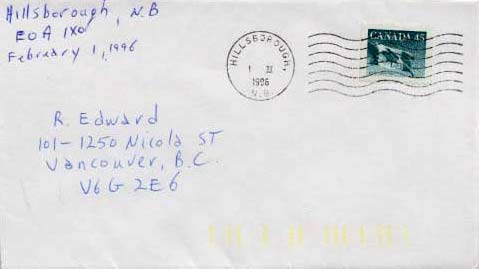 Hillsborough, N.B
E0A 1X0
February 1, 1996
HILLSBOROUGH
1 II
1996
N.B.
CANADA 45
R. Edward
101-1250 Nicola ST
Vancouver, B.C.
V6G 2E6